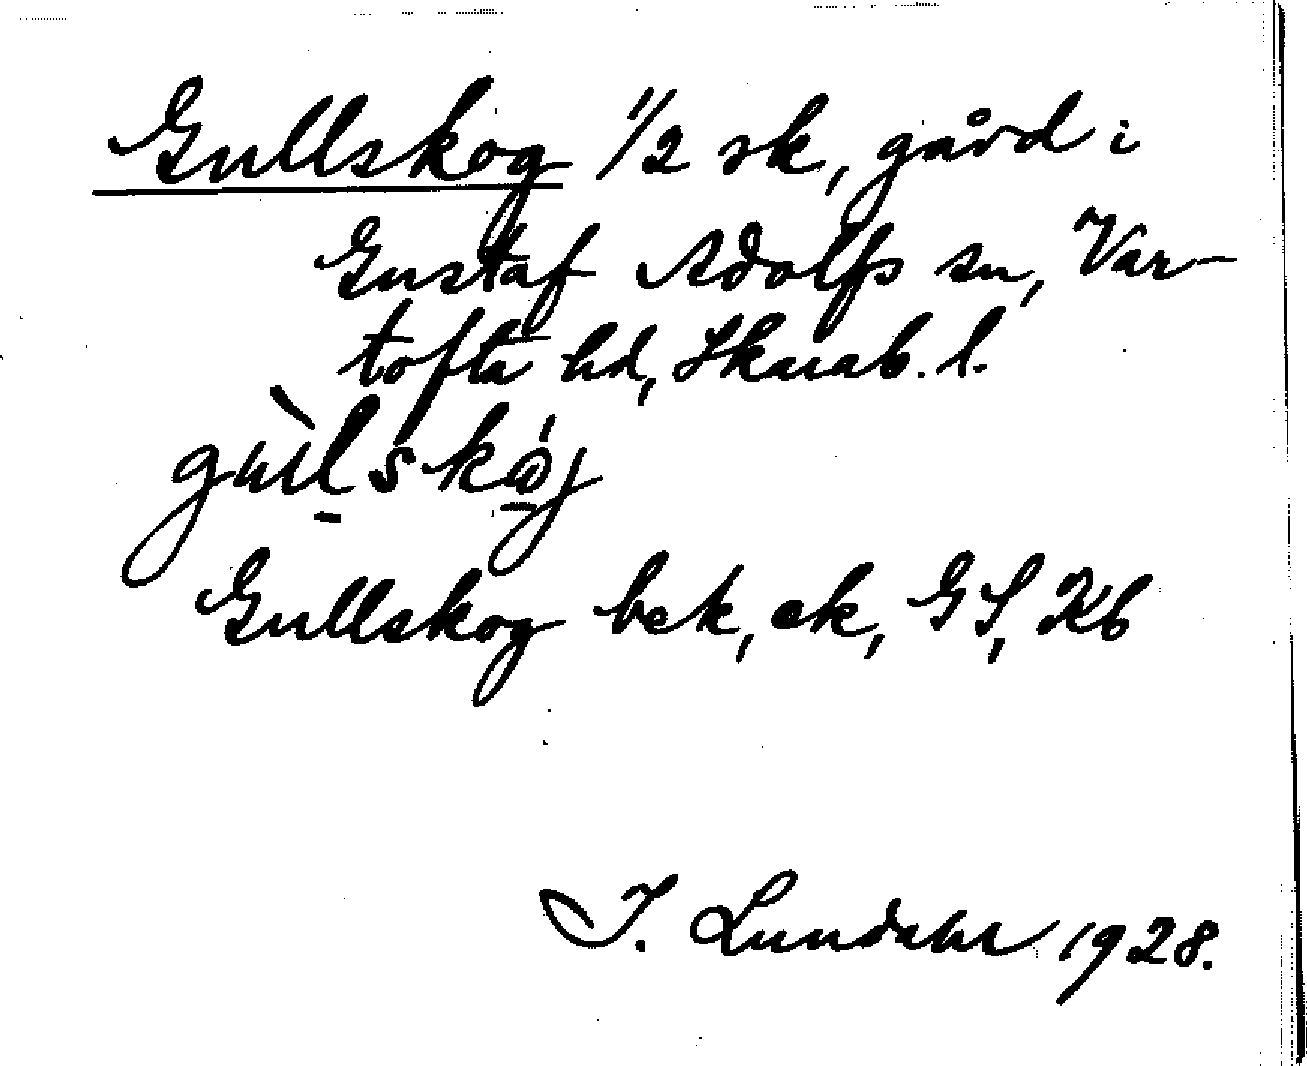 Gullskog 1/2 sk, gård i
Gustaf Adolfs sn, Var-
tofta hd, Skarab. l.
Gullskog bek, ek, GS, Kb
I. Lundahl 1928.